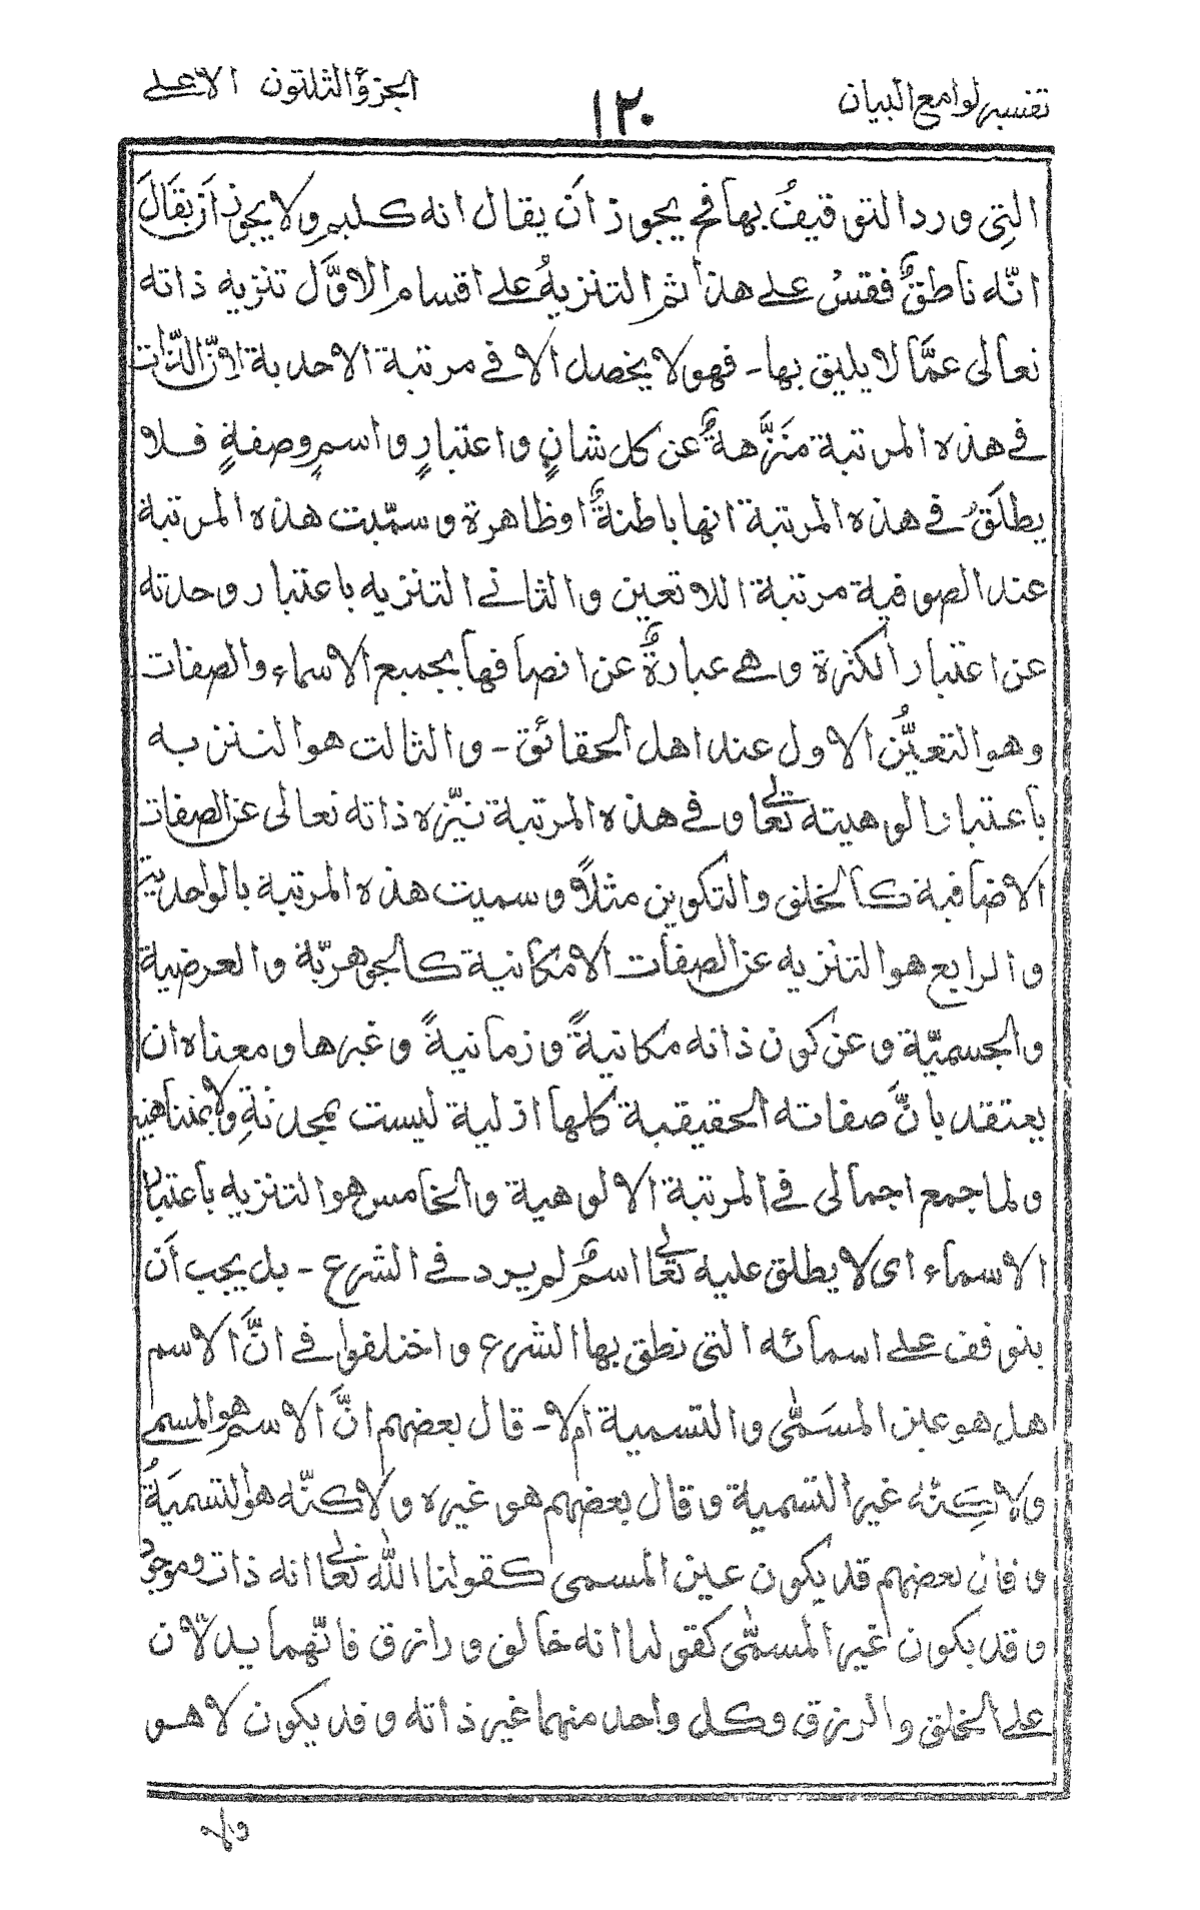 تفسير لوامع البيان
١٢٠
الجزؤ الثلثون الاعلى
التى ورد التوقيفُ بها فح يجوز ان يقال انه كليم ولا يجوز ان يقال
انّه ناطقٌ فقس على هذا ثم التنزيهُ على اقسام الاوّل تنزيه ذاته
تعالى عمّا لا يليق بها - فهو لا يحصل الا فى مرتبة الاحدية لانّ الذّات
فى هذه المرتبة منَزَّهةٌ عن كل شانٍ واعتبارٍ واسمٍ وصفةٍ فلا
يطلَقُ فى هذه المرتبة انها باطنةٌ او ظاهرة وسمّيت هذه المرتبة
عند الصوفية مرتبة اللا تعين والثانى التنزيه باعتبار وحدته
عن اعتبار الكثرة وهى عبارةٌ عن اتصافها بجميع الاسماء والصفات
وهو التعيُّن الاول عند اهل الحقائق - والثالث هو التنزيه
باعتبار الوهيته تعالى وفى هذه المرتبة نيّزه ذاته تعالى عن الصفات
الاضافية كالخلق والتكوين مثلاً وسميت هذه المرتبة بالواحدية
والرابع هو التنزيه عن الصفات الامكانية كالجوهريّة والعرضية
والجسميّة وعن كون ذاته مكانيةً وزمانيةً وغيرها ومعناه ان
يعتقد بانّ صفاته الحقيقية كلها ازلية ليست بمحدثةٍ ولا بمتناهية
ولما جمع اجمالى فى المرتبة الالوهية والخامس هو التنزيه باعتبار
الاسماء اى لا يطلق عليه تعالى اسمٌ لم يرد فى الشرع - بل يجب ان
يتوقف على اسمائه التى نطق بها الشرع واختلفوا فى انّ الاسم
هل هو عين المسَمّٰى والتسمية ام لا - قال بعضهم انّ الاسم هو المسمى
ولاكِنّه غير التسمية وقال بعضهم هو غيره ولاكنّه هو التسميَةُ
وقال بعضهم قد يكون عين المسمى كقولنا الله تعالى انه ذات وموجود
وقد يكون غير المسمّٰى كقولنا انه خالق ورازق فانّهما يدلّان
على الخلق والرزق وكل واحد منهما غير ذاته وقد يكون لا هو
ولا